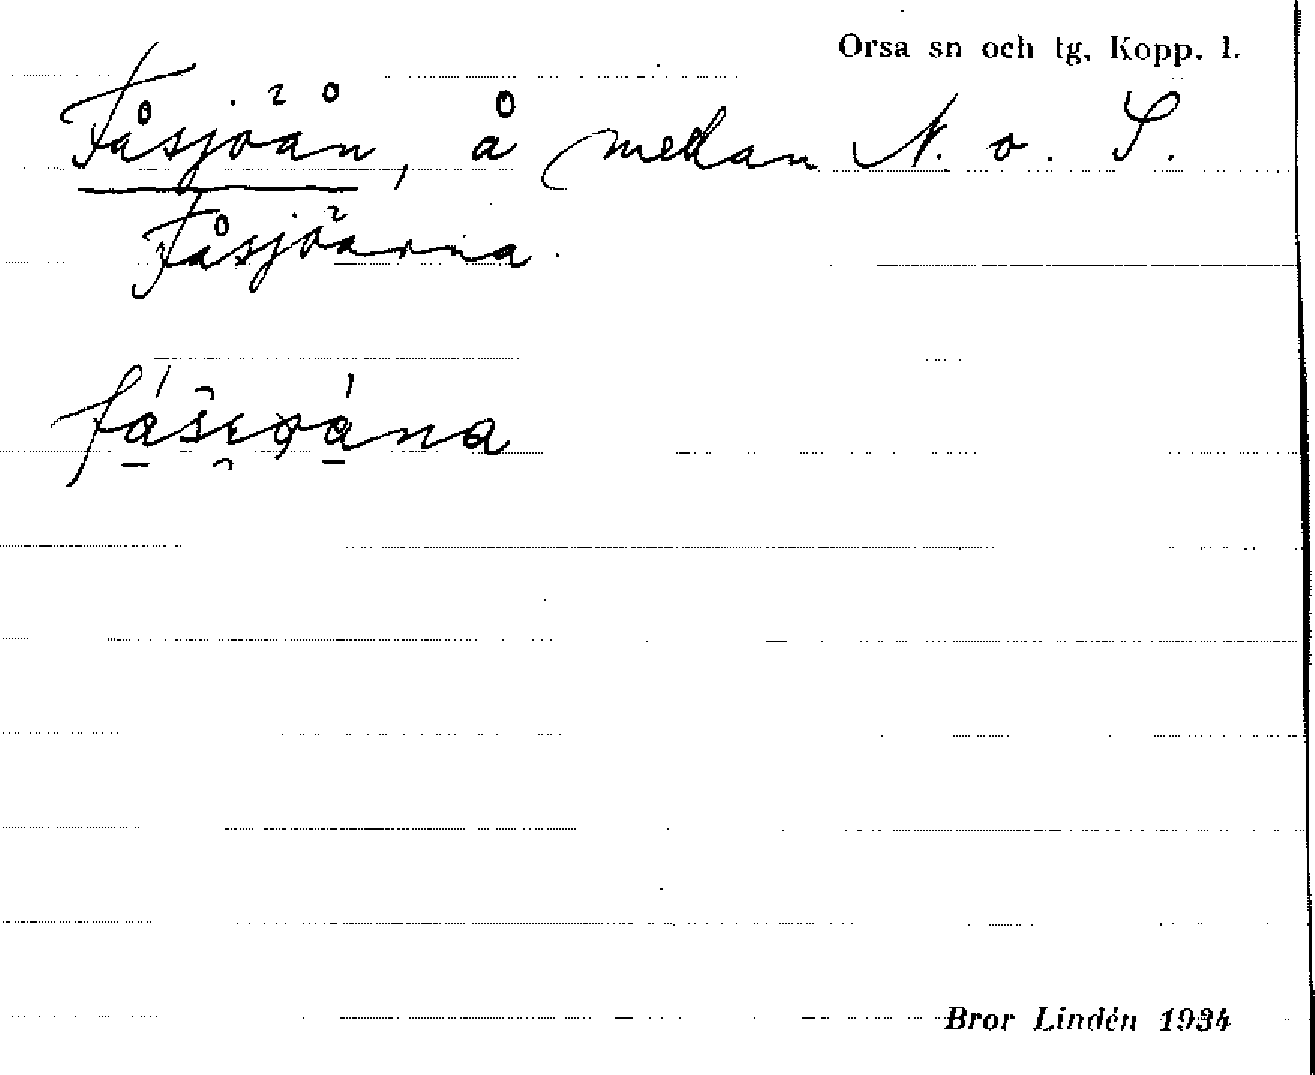 Orsa sn och tg, Kopp. l.
Fåsjöån, å mellan N. o. S.
Fåsjöarna.
Bror Lindén 1934